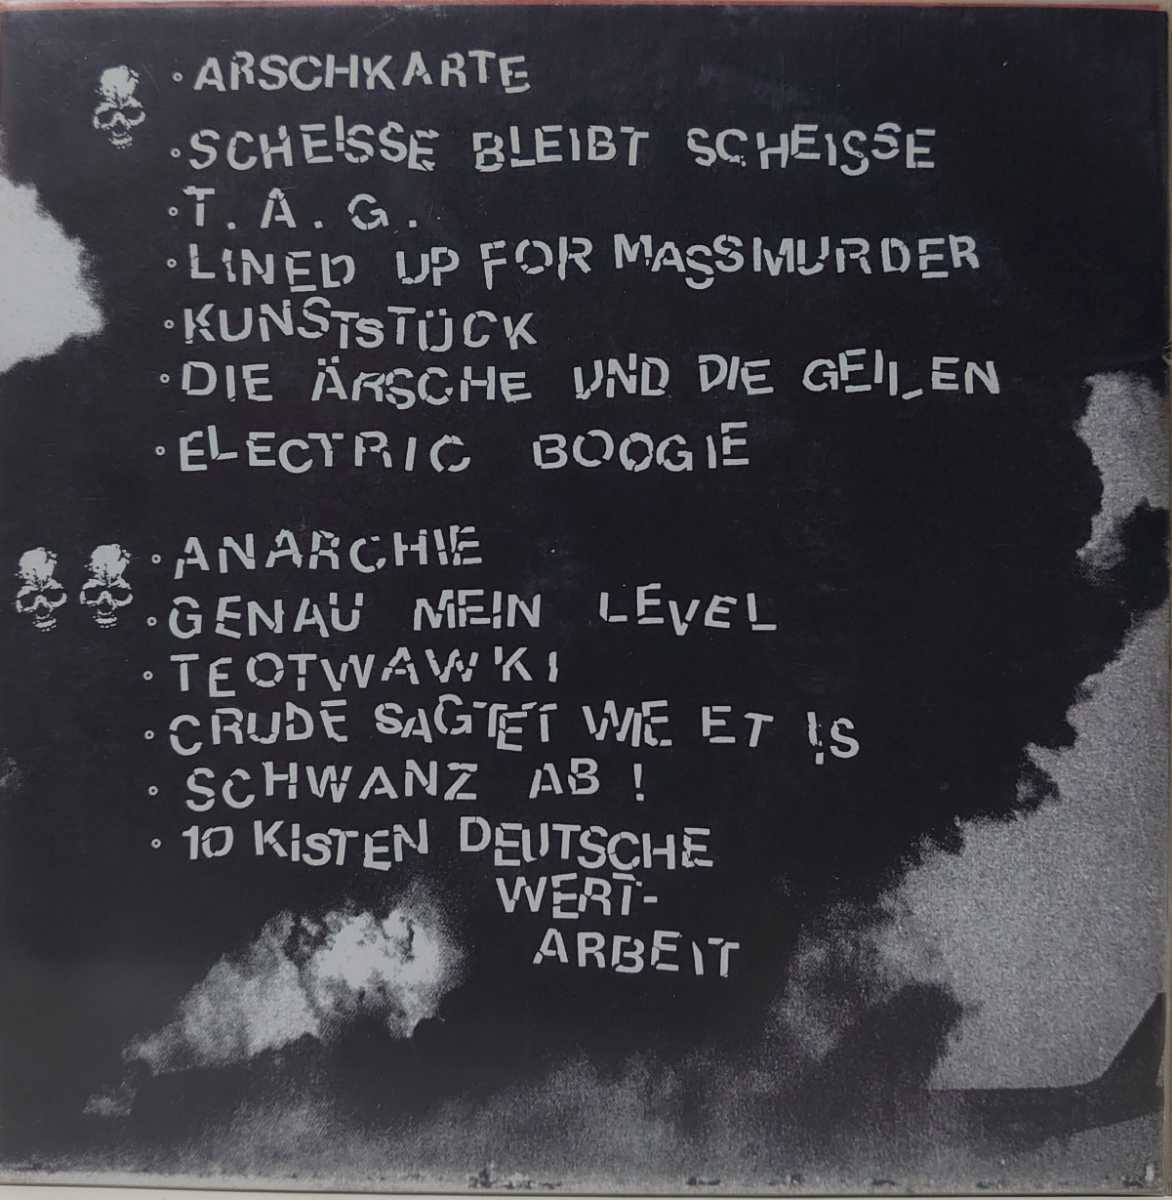 ARSCHKARTE
SCHEISSE BLEIBT SCHEISSE
T. A. G.
LINED UP FOR MASSMURDER
KUNSTSTÜCK
DIE ÄRSCHE UND DIE GEILEN
ELECTRIC BOOGIE
ANARCHIE
GENAU MEIN LEVEL
TEOTWAWKI
CRUDE SAGTET WIE ET IS
SCHWANZ AB !
10 KISTEN DEUTSCHE
WERT-
ARBEIT